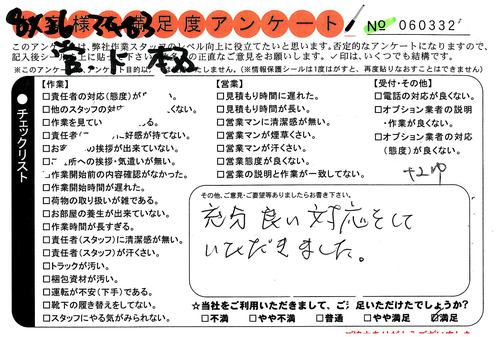 様満足度アンケート!
No 060332
このアンケートは、弊社作業スタッフのレベル向上に役立てたいと思います。否定的なアンケートになりますので、
記入後シールを上に貼って下さい の正直なご意見をお願いします。✓印は、いくつでも結構です。
※このアンケート アンケート目的以 しません。(※情報保護シールは1度はがすと、再度貼りなおすことはできません)
チェックリスト
【作業】
□責任者の対応(態度)が
□他のスタッフの対
□作業を見てい る。
□責任者( に好感が持てない。
□お の挨拶が出来ていない。
所への挨拶・気遣いが無い。
□作業開始前の内容確認がなかった。
□作業開始時間が遅れた。
□荷物の取り扱いが雑である。
□お部屋の養生が出来ていない。
□作業時間が長すぎる。
□責任者(スタッフ)に清潔感が無い。
□責任者(スタッフ)が汗くさい。
□トラックが汚い。
□梱包資材が汚い。
□運転が不安(下手)である。
□靴下の履き替えをしてない。
□スタッフにやる気がみられない。
【営業】
□見積もり時間に遅れた。
□見積もり時間が長い。
□営業マンに清潔感が無い。
□営業マンが煙草くさい。
□営業マンが汗くさい。
□営業態度が良くない。
□営業の説明と作業が一致してない。
【受付・その他】
□電話の対応が良くない。
□オプション業者の説明
・作業が良くない。
□オプション業者の対応
(態度)が良くない。
その他、ご意見・ご要望等ありましたらお書き下さい。
充分良い対応をして
いただきました。
☆当社をご利用いただきまして、ご 足いただけたでしょうか?
□不満 □やや不満 □普通 □やや満足 ☑満足